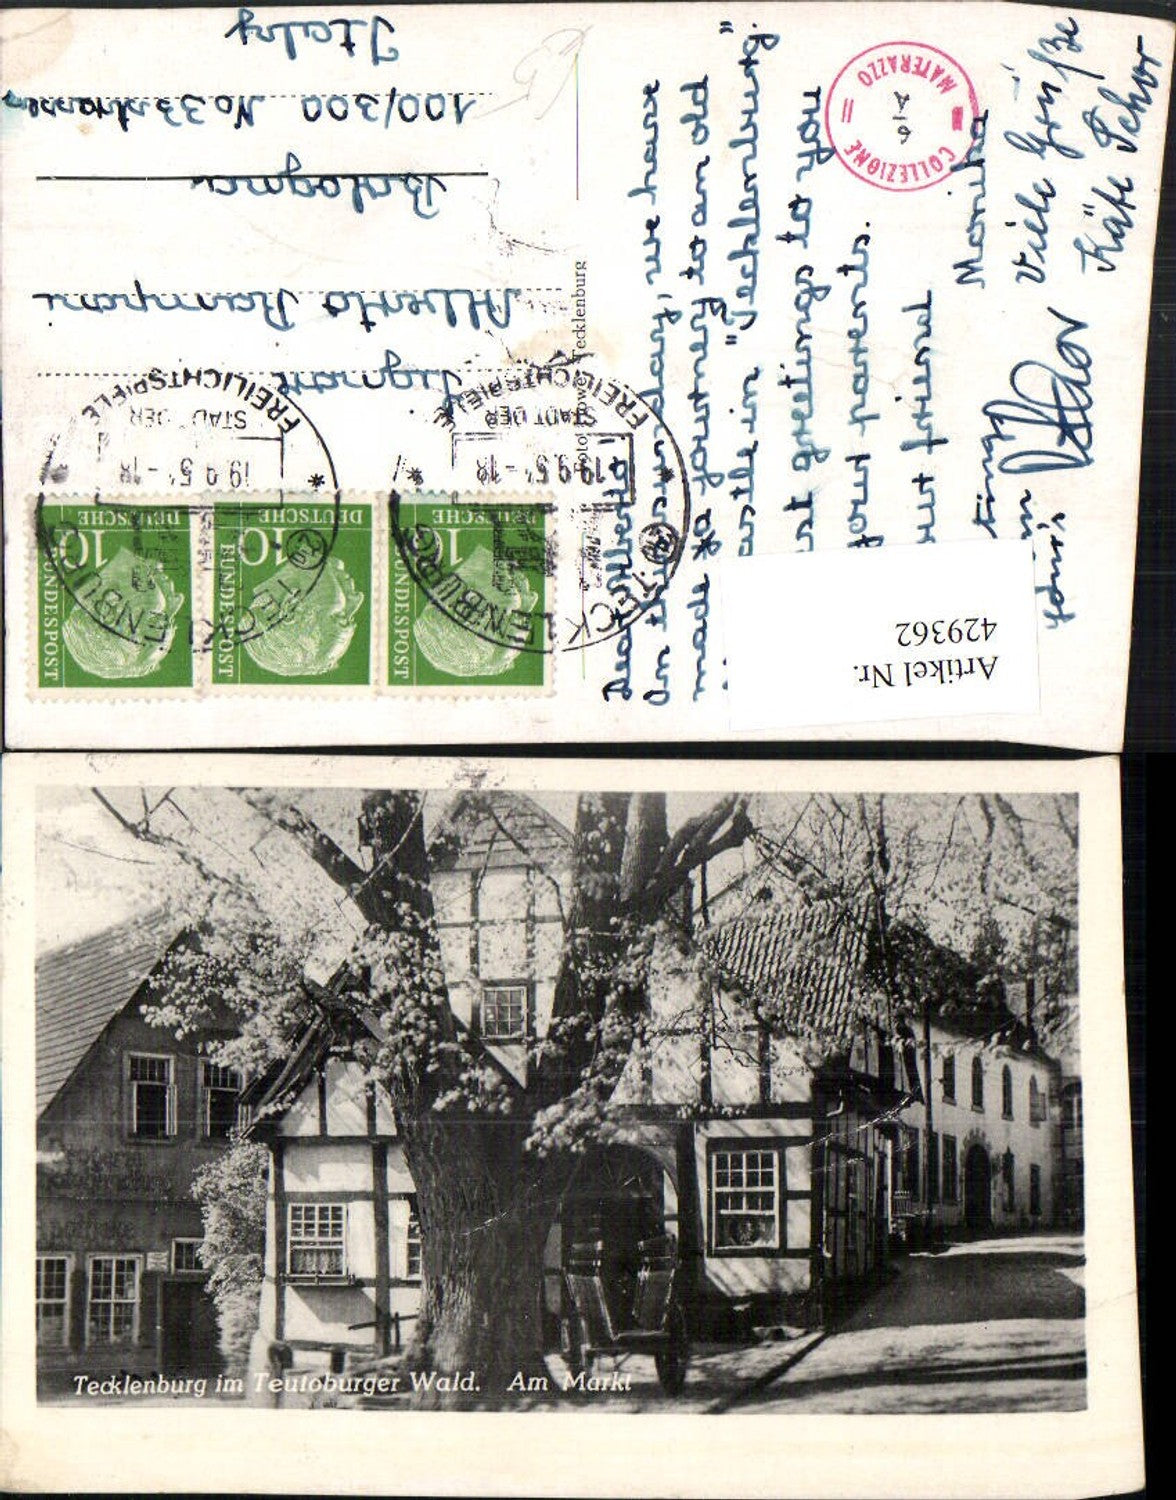 Italy
100/300 No 33
Bologna
Alberto Rampani
Signore
Dear Alberto!
On this sunday, we have
made
a journey to an old
castle in "Tecklenburg".
greetings to you
your parents.
your friend
Marika
Viele Grüße
Käte Schor
COLLEZIONE
MATERAZZO
Tecklenburg
FREILICHTSPIELE
STADT DER
19.9.5
-18
TECKLENBURG
FREILICHTSPIELE
STADT DER
19.9.5
-18
TECKLENBURG
DEUTSCHE
BUNDESPOST
10
DEUTSCHE
BUNDESPOST
10
DEUTSCHE
BUNDESPOST
10
Artikel Nr.
429362
Tecklenburg im Teutoburger Wald. Am Markt